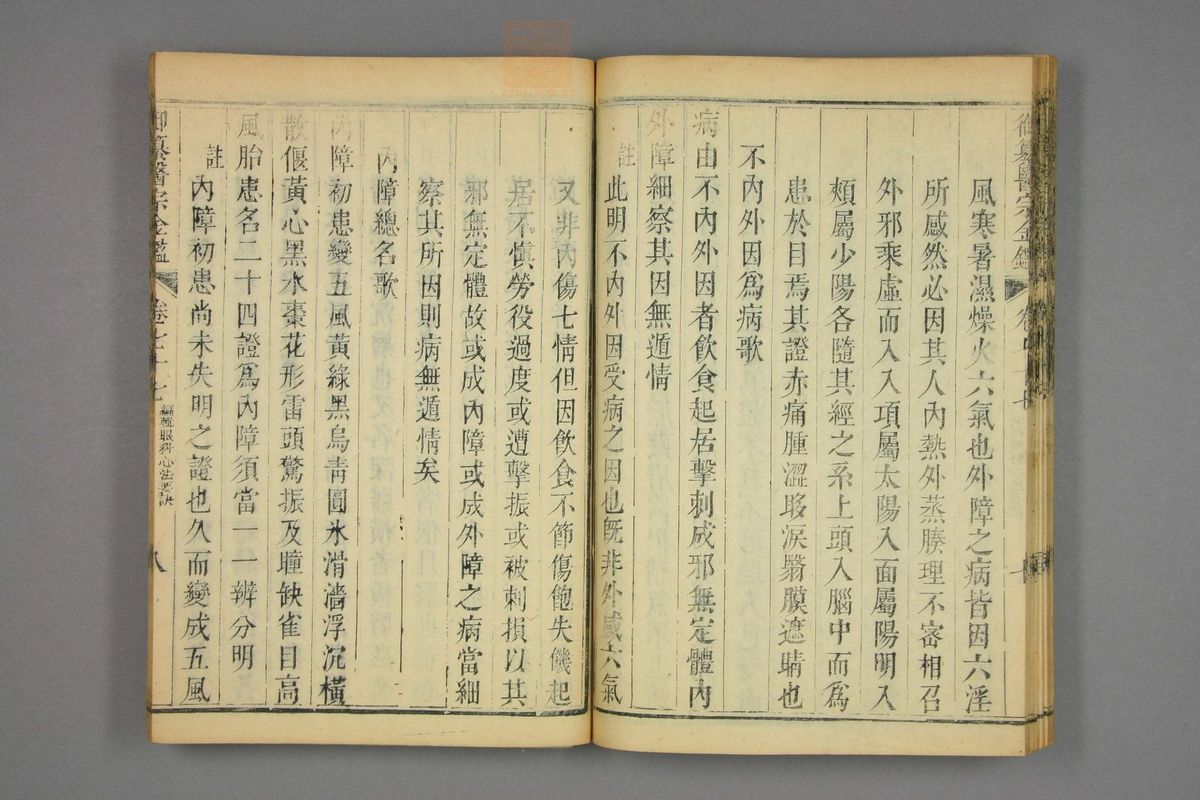 御纂醫宗金鑑 卷七十七
風寒暑濕燥火六氣也外障之病皆因六淫
所感然必因其人內熱外蒸腠理不密相召
外邪乘虛而入入項屬太陽入面屬陽明入
頰屬少陽各隨其經之系上頭入腦中而為
患於目焉其證赤痛腫澀眵淚翳膜遮睛也
不內外因爲病歌
病由不內外因者飲食起居擊刺成邪無定體內
外障細察其因無遁情
註
此明不內外因受病之因也既非外感六氣
又非內傷七情但因飲食不節傷飽失饑起
居不慎勞役過度或遭擊振或被刺損以其
邪無定體故或成內障或成外障之病當細
察其所因則病無遁情矣
內障總名歌
內障初患變五風黃綠黑烏青圓氷滑濇浮沉橫
散偃黃心黑水棗花形雷頭驚振及瞳缺雀目高
風胎患名二十四證爲內障須當一一辨分明
註
內障初患尚未失明之證也久而變成五風
御纂醫宗金鑑 卷七十七 編輯眼科心法要訣 八